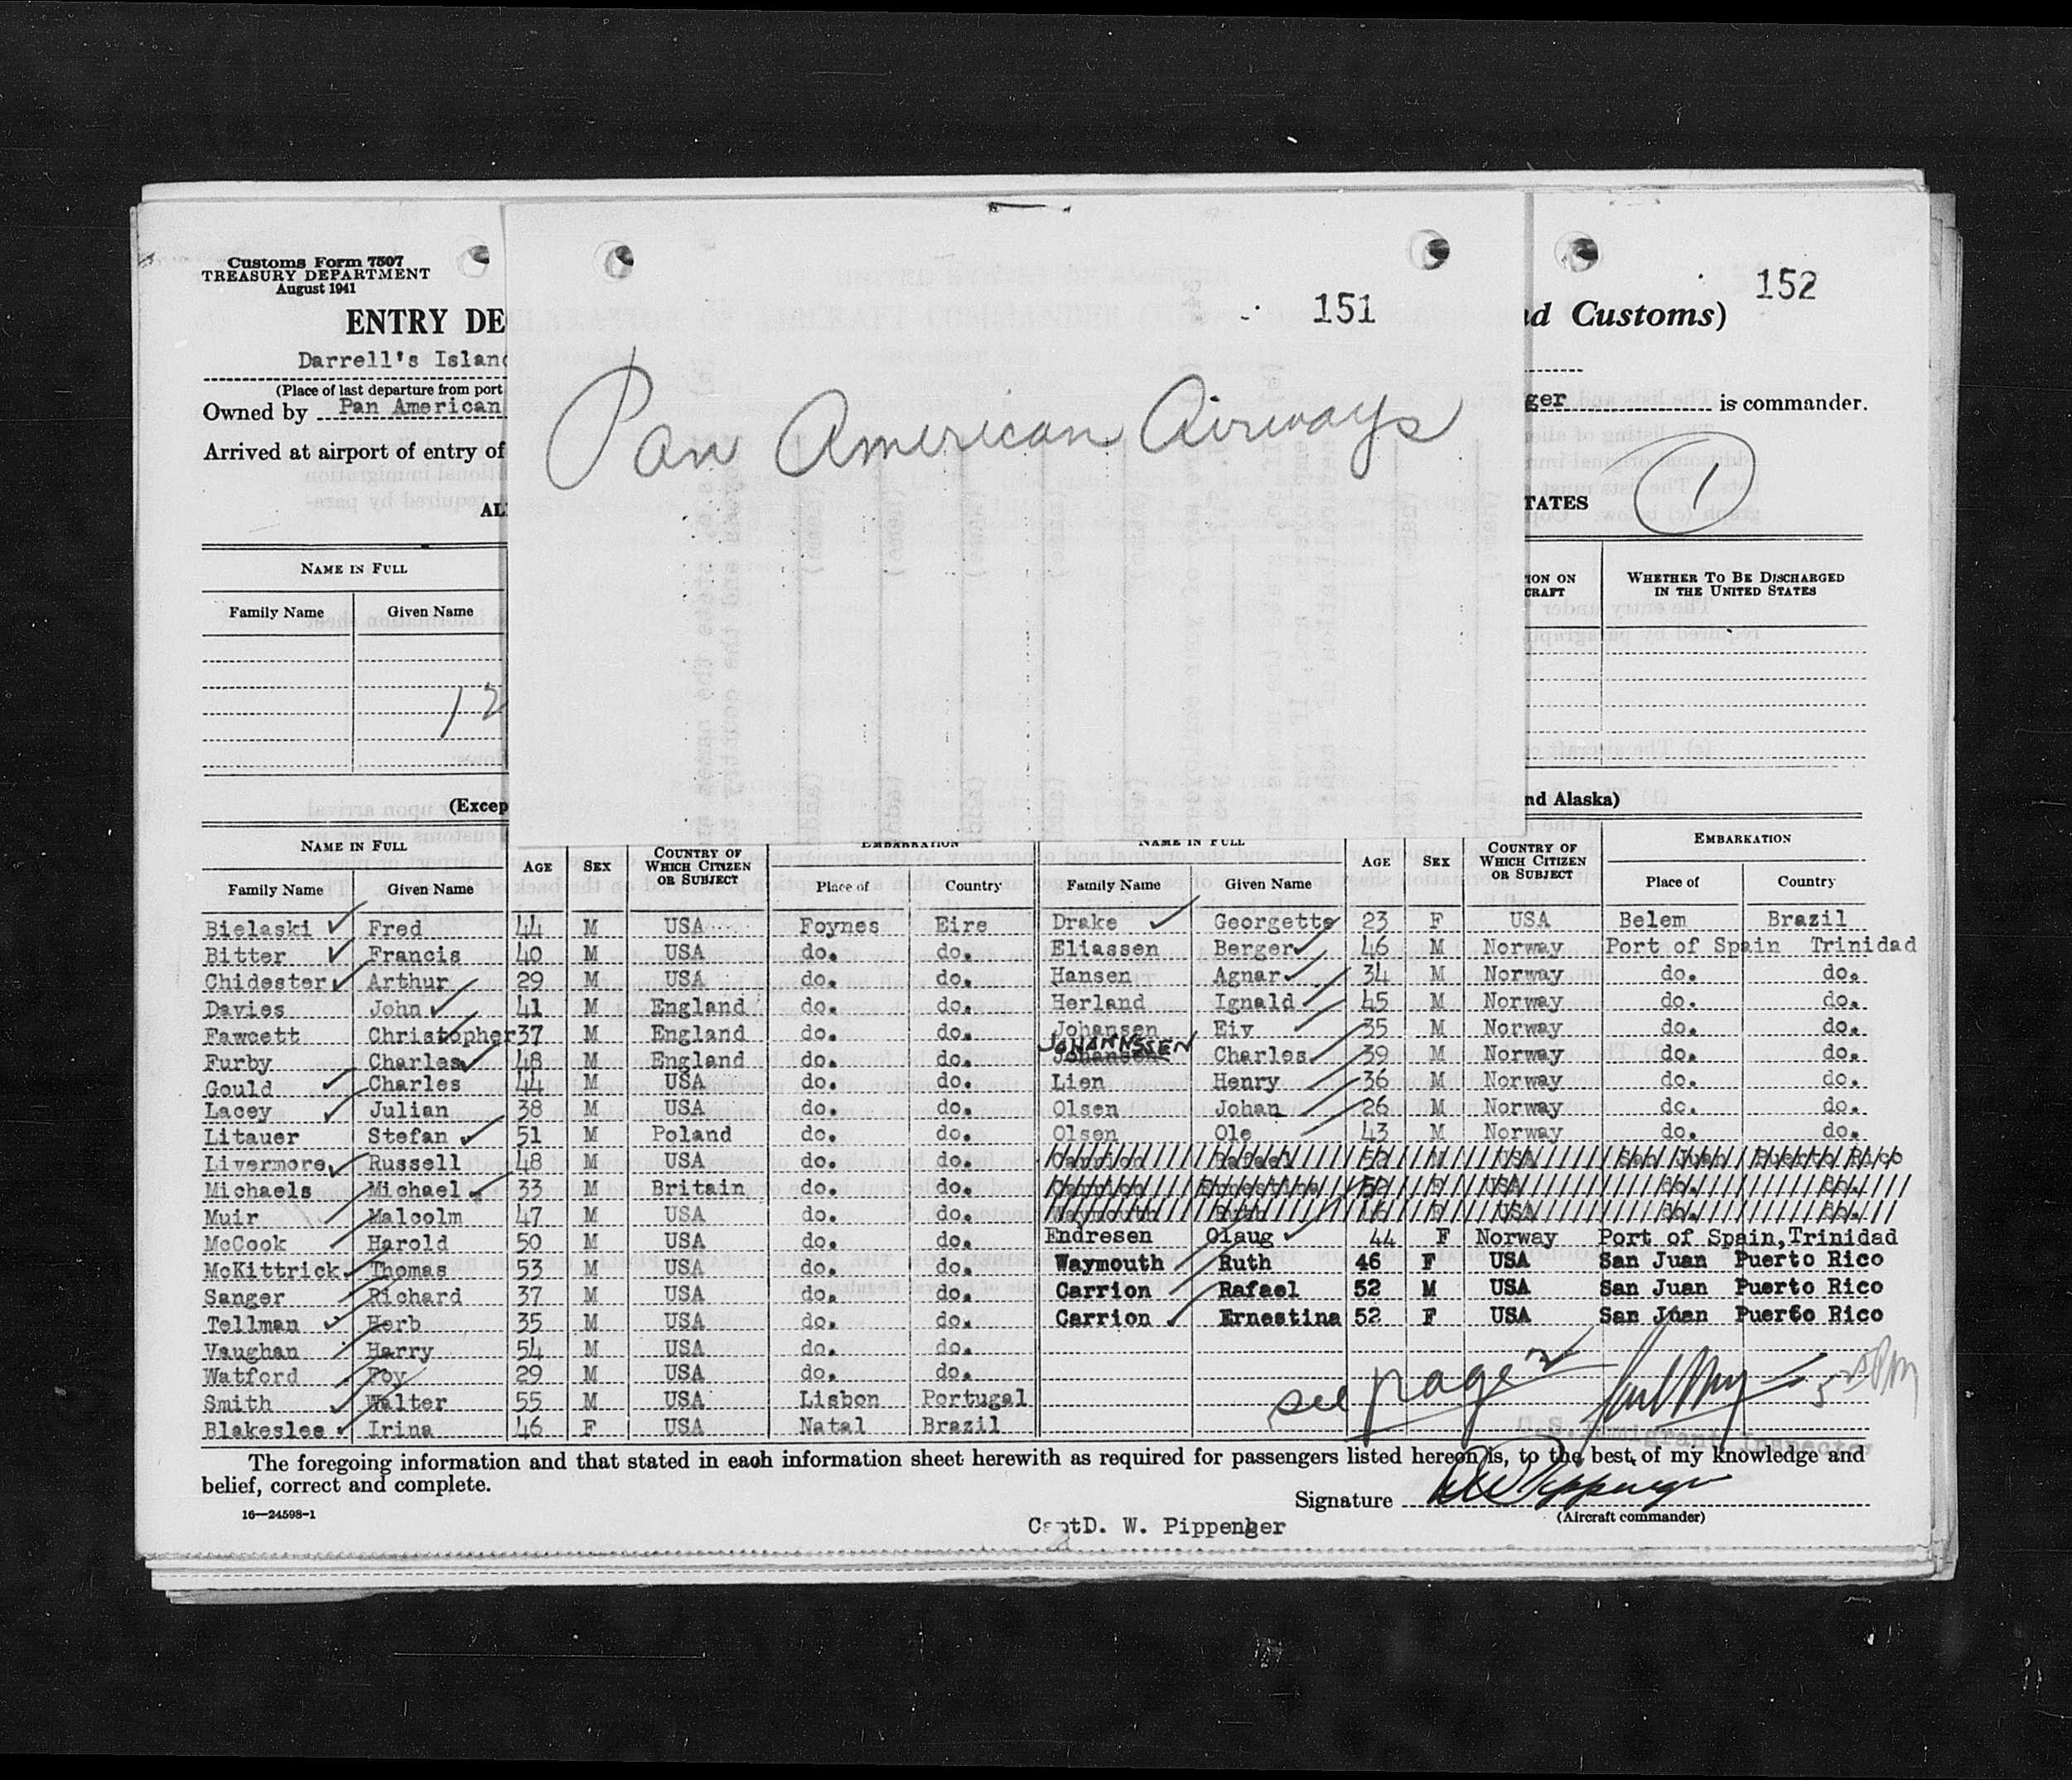 Customs Form 7507
TREASURY DEPARTMENT
August 1941
151
152
ENTRY DE
d Customs)
Darrell's Islan
(Place of last departure from port
Owned by Pan American
ger is commander.
Pan American Airways
Arrived at airport of entry of
AL
TATES
1
NAME IN FULL
ION ON
CRAFT
WHETHER TO BE DISCHARGED
IN THE UNITED STATES
Family Name Given Name
12
(Excep
nd Alaska)
NAME IN FULL AGE SEX COUNTRY OF WHICH CITIZEN OR SUBJECT EMBARKATION NAME IN FULL AGE SEX COUNTRY OF WHICH CITIZEN OR SUBJECT EMBARKATION
Family Name Given Name Place of Country Family Name Given Name Place of Country
Bielaski Fred 44 M USA Foynes Eire Drake Georgette 23 F USA Belem Brazil
Bitter Francis 40 M USA do. do. Eliassen Berger 46 M Norway Port of Spain Trinidad
Chidester Arthur 29 M USA do. do. Hansen Agnar 34 M Norway do. do.
Davies John 41 M England do. do. Herland Ignald 45 M Norway do. do.
Fawcett Christopher 37 M England do. do. Johansen Eiv 35 M Norway do. do.
JOHANNSSEN
Furby Charles 48 M England do. do. Johansen Charles 39 M Norway do. do.
Gould Charles 44 M USA do. do. Lien Henry 36 M Norway do. do.
Lacey Julian 38 M USA do. do. Olsen Johan 26 M Norway do. do.
Litauer Stefan 51 M Poland do. do. Olsen Ole 43 M Norway do. do.
Livermore Russell 48 M USA do. do. Carrion Rafael 52 M USA San Juan Puerto Rico
Michaels Michael 33 M Britain do. do. Carrion Ernestina 52 F USA do. do.
Muir Malcolm 47 M USA do. do. Waymouth Ruth 46 F USA do. do.
McCook Harold 50 M USA do. do. Endresen Olaug 44 F Norway Port of Spain, Trinidad
McKittrick Thomas 53 M USA do. do. Waymouth Ruth 46 F USA San Juan Puerto Rico
Sanger Richard 37 M USA do. do. Carrion Rafael 52 M USA San Juan Puerto Rico
Tellman Herb 35 M USA do. do. Carrion Ernestina 52 F USA San Juan Puerto Rico
Vaughan Harry 54 M USA do. do.
Watford Foy 29 M USA do. do.
see page 2
Smith Walter 55 M USA Lisbon Portugal
Blakeslee Irina 46 F USA Natal Brazil
U.S. Immigrant Inspector
The foregoing information and that stated in each information sheet herewith as required for passengers listed hereon is, to the best of my knowledge and
belief, correct and complete.
Signature D W Pippenger
(Aircraft commander)
16—24598-1
Capt D. W. Pippenger